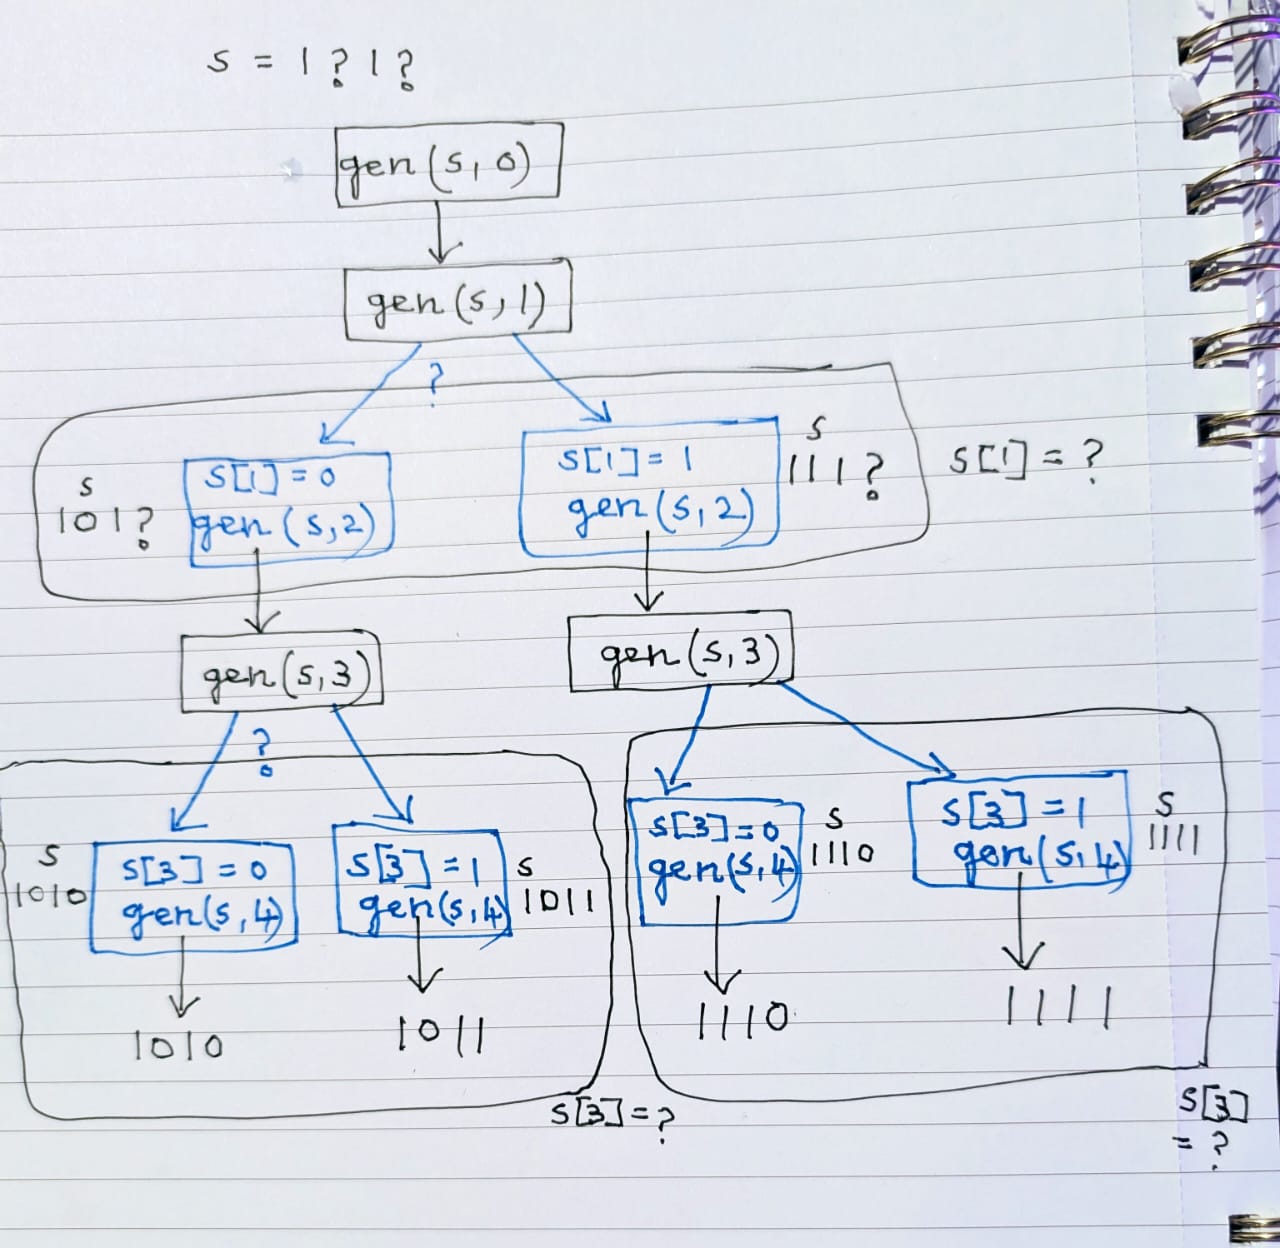 s = 1 ? 1 ?
gen(s, 0)
gen(s, 1)
?
s
101?
s[1] = 0
gen(s, 2)
s[1] = 1
gen(s, 2)
s
111?
s[1] = ?
gen(s, 3)
gen(s, 3)
?
s
1010
s[3] = 0
gen(s, 4)
s[3] = 1
gen(s, 4)
s
1011
s[3] = 0
gen(s, 4)
s
1110
s[3] = 1
gen(s, 4)
s
1111
1010
1011
1110
1111
s[3] = ?
s[3]
= ?